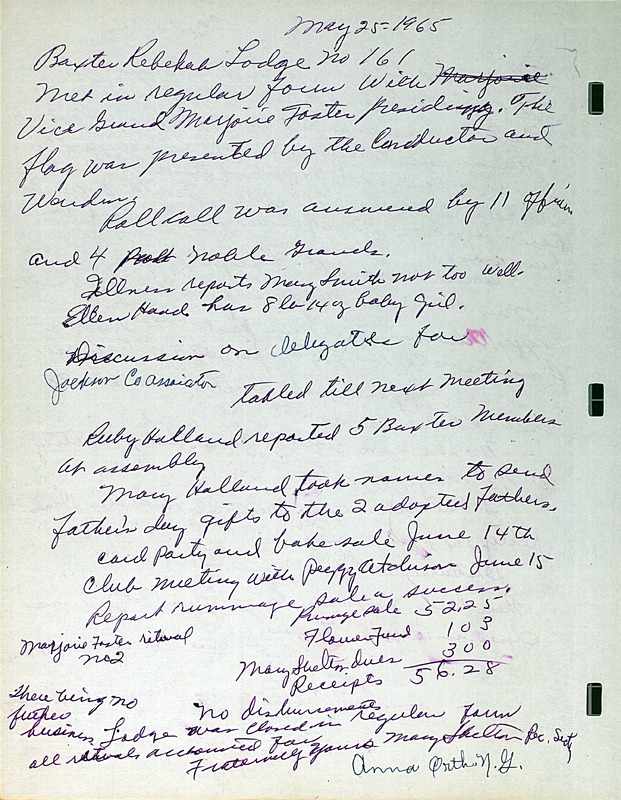 May 25-1965
Baxter Rebekah Lodge No 161
met in regular form with Marjorie
Vice Grand Marjorie Foster presiding. The
flag was presented by the Conductor and
Warden.
Roll call was answered by 11 officers
and 4 Past Noble Grands.
Illness reports Mary Smith not too well.
Ellen Hand has 8 lb 14 oz baby girl.
Discussion on delegates for
Jackson Co assoiator
tabled till next meeting
Ruby Holland reported 5 Baxter Members
at assembly
Mary Holland took names to send
father's day gifts to the 2 adopted fathers.
card party and bake sale June 14th
Club meeting with Peggy Atchison June 15
Report rummage sale a success.
Rumage Sale 52.25
Marjorie Foster ritual
no 2
Flower Fund 1 03
Mary Shelton dues 3 00
Receipts 56.28
There being no
further
no disbursements
business Lodge was closed in regular form
all rituals accounted for
Fraternly Yours Mary Shelton Rec. Secty
Anna Orth N.G.